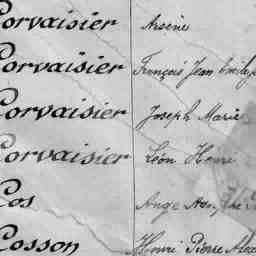 Corvaisier Arsène
Corvaisier François Jean Emile
Corvaisier Joseph Marie
Corvaisier Léon Henri
Cos Ange
Cosson Henri Pierre Alex